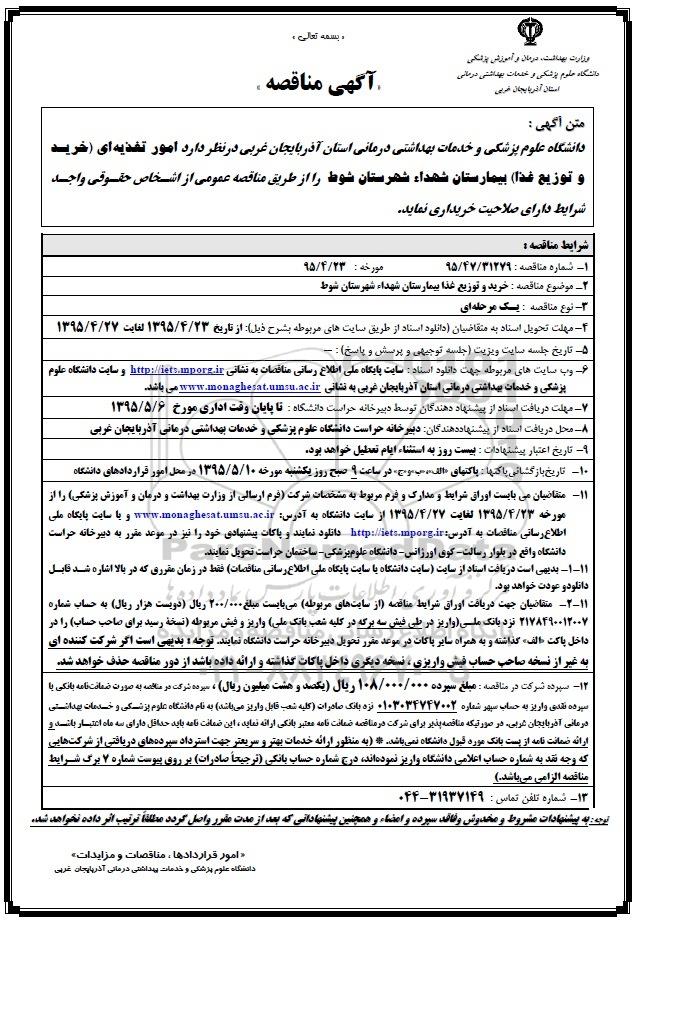 « بسمه تعالی »
وزارت بهداشت، درمان و آموزش پزشکی
دانشگاه علوم پزشکی و خدمات بهداشتی درمانی
استان آذربایجان غربی
« آگهی مناقصه »
متن آگهی :
دانشگاه علوم پزشکی و خدمات بهداشتی درمانی استان آذربایجان غربی درنظر دارد امور تغذیه‌ای (خریـد
و توزیع غذا) بیمارستان شهداء شهرستان شوط را از طریق مناقصه عمومی از اشـخاص حقـوقی واجـد
شرایط دارای صلاحیت خریداری نماید.
شرایط مناقصه :
۱- شماره مناقصه : ۹۵/۴۷/۳۱۲۷۹ مورخه : ۹۵/۴/۲۳
۲- موضوع مناقصه : خرید و توزیع غذا بیمارستان شهداء شهرستان شوط
۳- نوع مناقصه : یـک مرحله‌ای
۴- مهلت تحویل اسناد به متقاضیان (دانلود اسناد از طریق سایت های مربوطه بشرح ذیل): از تاریخ ۱۳۹۵/۴/۲۳ لغایت ۱۳۹۵/۴/۲۷
۵- تاریخ جلسه سایت ویزیت (جلسه توجیهی و پرسش و پاسخ) : ---
۶- وب سایت های مربوطه جهت دانلود اسناد : سایت پایگاه ملی اطلاع رسانی مناقصات به نشانی http://iets.mporg.ir و سایت دانشگاه علوم
پزشکی و خدمات بهداشتی درمانی استان آذربایجان غربی به نشانی www.monaghesat.umsu.ac.ir می باشد.
۷- مهلت دریافت اسناد از پیشنهاد دهندگان توسط دبیرخانه حراست دانشگاه : تا پایان وقت اداری مورخ ۱۳۹۵/۵/۶
۸- محل دریافت اسناد از پیشنهاددهندگان: دبیرخانه حراست دانشگاه علوم پزشکی و خدمات بهداشتی درمانی آذربایجان غربی
۹- تاریخ اعتبار پیشنهادات : بیست روز به استثناء ایام تعطیل خواهد بود.
۱۰- تاریخ بازگشائی پاکتها : پاکتهای «الف»،«ب»و«ج» در ساعت ۹ صبح روز یکشنبه مورخه ۱۳۹۵/۵/۱۰ در محل امور قراردادهای دانشگاه
۱۱- متقاضیان می بایست اوراق شرایط و مدارک و فرم مربوط به مشخصات شرکت (فرم ارسالی از وزارت بهداشت و درمان و آموزش پزشکی) را از
مورخه ۱۳۹۵/۴/۲۳ لغایت ۱۳۹۵/۴/۲۷ از سایت دانشگاه به آدرس: www.monaghesat.umsu.ac.ir و یا سایت پایگاه ملی
اطلاع‌رسانی مناقصات به آدرس: http://iets.mporg.ir دانلود نمایند و پاکات پیشنهادی خود را نیز در موعد مقرر به دبیرخانه حراست
دانشگاه واقع در بلوار رسالت- کوی اورژانس- دانشگاه علوم‌پزشکی - ساختمان حراست تحویل نمایند.
۱۱-۱- بدیهی است دریافت اسناد از سایت (سایت دانشگاه یا سایت پایگاه ملی اطلاع‌رسانی مناقصات) فقط در زمان مقرری که در بالا اشاره شـد قابـل
دانلودو عودت خواهد بود.
۱۱-۲- متقاضیان جهت دریافت اوراق شرایط مناقصه (از سایت‌های مربوطه) می‌بایست مبلغ ۲۰۰/۰۰۰ ریال (دویست هزار ریال) به حساب شماره
۲۱۷۸۲۴۹۰۰۱۲۰۰۷ نزد بانک ملـی (واریز در طی فیش سه برگه در کلیه شعب بانک ملی) واریز و فیش مربوطه (نسخة رسید برای صاحب حساب) را در
داخل پاکت «الف» گذاشته و به همراه سایر پاکات در موعد مقرر تحویل دبیرخانه حراست دانشگاه نمایند. توجه : بدیهی است اگر شرکت کننده ای
به غیر از نسخه صاحب حساب فیش واریزی ، نسخه دیگری داخل پاکات گذاشته و ارائه داده باشد از دور مناقصه حذف خواهد شد.
۱۲- سپرده شرکت در مناقصه : مبلغ سپرده ۱۰۸/۰۰۰/۰۰۰ ریال (یکصد و هشت میلیون ریال) ، سپرده شرکت در مناقصه به صورت ضمانت‌نامه بانکی یا
سپرده نقدی واریز به حساب سپهر شماره ۰۱۰۳۰۳۴۷۴۷۰۰۲ نزد بانک صادرات (کلیه شعب قابل واریز می‌باشد) به نام دانشگاه علوم پزشـکی و خـدمات بهداشـتی
درمانی آذربایجان غربی، در صورتیکه مناقصه‌پذیر برای شرکت درمناقصه ضمانت نامه معتبر بانکی ارائه نماید ، این ضمانت نامه باید حداقل دارای سه ماه اعتبـار باشـد و
ارائه ضمانت نامه از پست بانک مورد قبول دانشگاه نمی‌باشد. * (به منظور ارائه خدمات بهتر و سریعتر جهت استرداد سپرده‌های دریافتی از شرکت‌هایی
که وجه نقد به شماره حساب اعلامی دانشگاه واریز نموده‌اند، درج شماره حساب بانکی (ترجیحاً صادرات) بر روی پیوست شماره ۷ برگ شـرایط
مناقصه الزامی می‌باشد.)
۱۳- شماره تلفن تماس : ۰۴۴-۳۱۹۳۷۱۴۹
توجه: به پیشنهادات مشروط و مخدوش وفاقد سپرده و امضاء و همچنین پیشنهاداتی که بعد از مدت مقرر واصل گردد مطلقاً ترتیب اثر داده نخواهد شد.
«امور قراردادها ، مناقصات و مزایدات»
دانشگاه علوم پزشکی و خدمات بهداشتی درمانی آذربایجان غربی